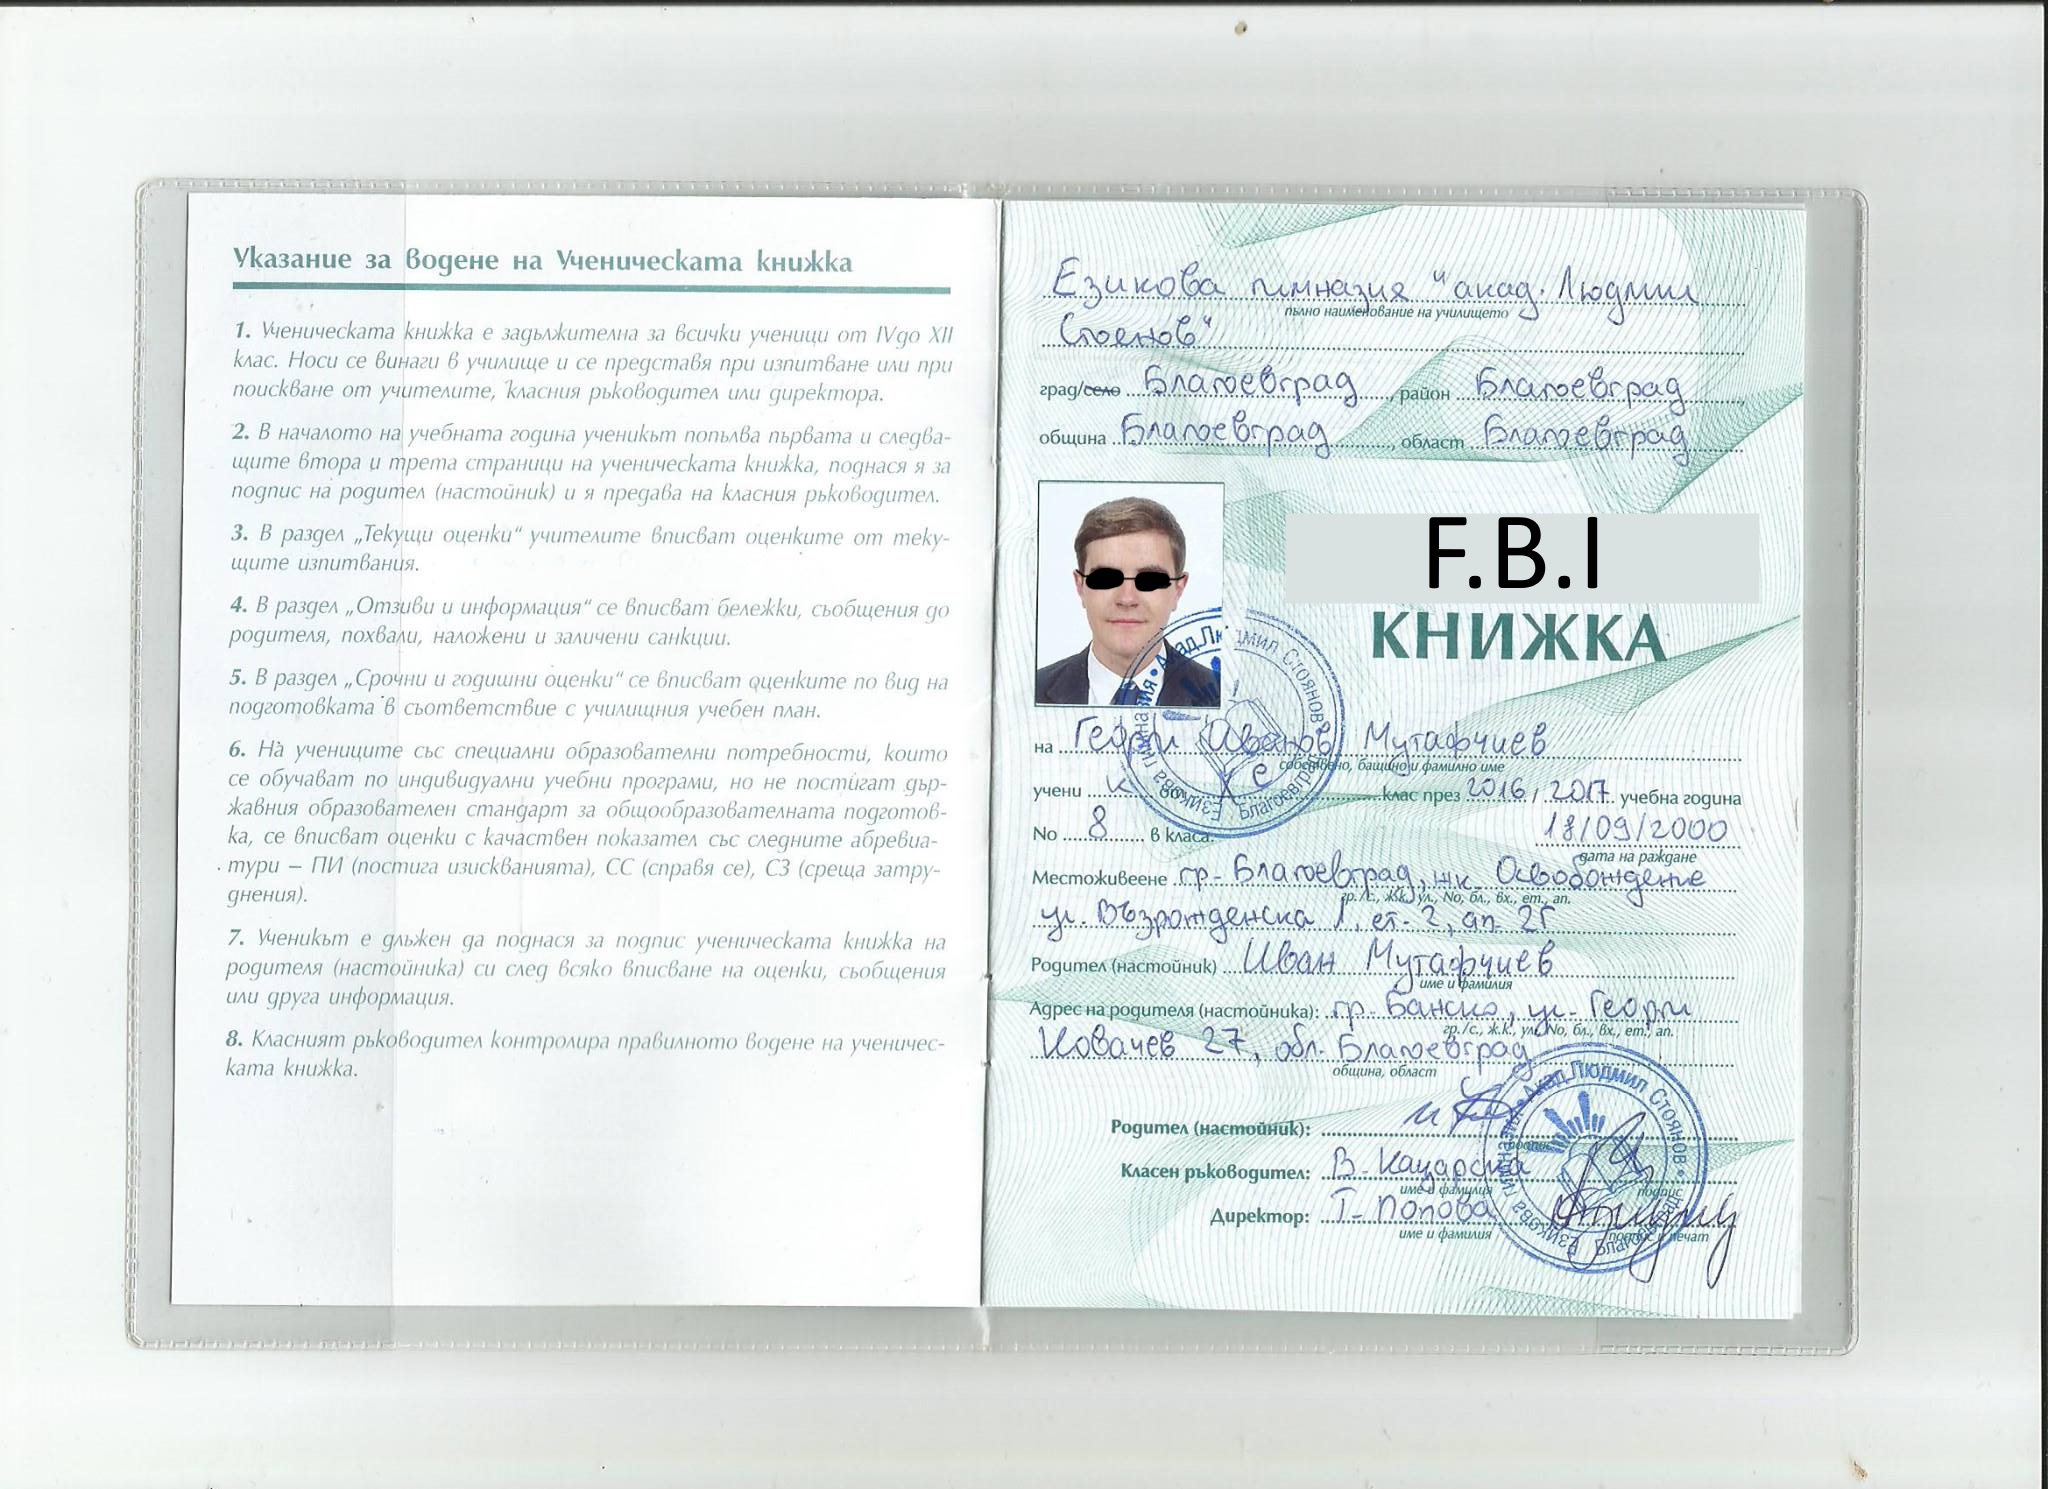 Указание за водене на Ученическата книжка
1. Ученическата книжка е задължителна за всички ученици от IV до XII
клас. Носи се винаги в училище и се представя при изпитване или при
поискване от учителите, класния ръководител или директора.
2. В началото на учебната година ученикът попълва първата и следва-
щите втора и трета страници на ученическата книжка, поднася я за
подпис на родител (настойник) и я предава на класния ръководител.
3. В раздел „Текущи оценки“ учителите вписват оценките от теку-
щите изпитвания.
4. В раздел „Отзиви и информация“ се вписват бележки, съобщения до
родителя, похвали, наложени и заличени санкции.
5. В раздел „Срочни и годишни оценки“ се вписват оценките по вид на
подготовката в съответствие с училищния учебен план.
6. На учениците със специални образователни потребности, които
се обучават по индивидуални учебни програми, но не постигат дър-
жавния образователен стандарт за общообразователната подготов-
ка, се вписват оценки с качествен показател със следните абревиа-
тури – ПИ (постига изискванията), СС (справя се), СЗ (среща затру-
днения).
7. Ученикът е длъжен да поднася за подпис ученическата книжка на
родителя (настойника) си след всяко вписване на оценки, съобщения
или друга информация.
8. Класният ръководител контролира правилното водене на ученичес-
ката книжка.
Езикова гимназия "акад. Людмил
пълно наименование на училището
Стоянов"
град/село Благоевград, район Благоевград,
община Благоевград, област Благоевград
F.B.I
КНИЖКА
на Георги Иванов Мутафчиев
собствено, бащино и фамилно име
учени к от X с клас през 2016 / 2017 учебна година
No 8 в класа. 18/09/2000
дата на раждане
Местоживеене гр. Благоевград, жк. Освобождение
гр./с., ж.к., ул., No, бл., вх., ет., ап.
ул. Възрожденска 1, ет. 2, ап. 2г
Родител (настойник) Иван Мутафчиев
име и фамилия
Адрес на родителя (настойника): гр. Банско, ул. Георги
гр./с., ж.к., ул., No, бл., вх., ет., ап.
Ковачев 27, обл. Благоевград
община, област
Родител (настойник):
подпис
Класен ръководител: В. Кацарска
име и фамилия подпис
Директор: Т. Попова
име и фамилия подпис и печат
Езикова гимназия • Акад. Людмил Стоянов • Благоевград
Езикова гимназия • Акад. Людмил Стоянов • Благоевград